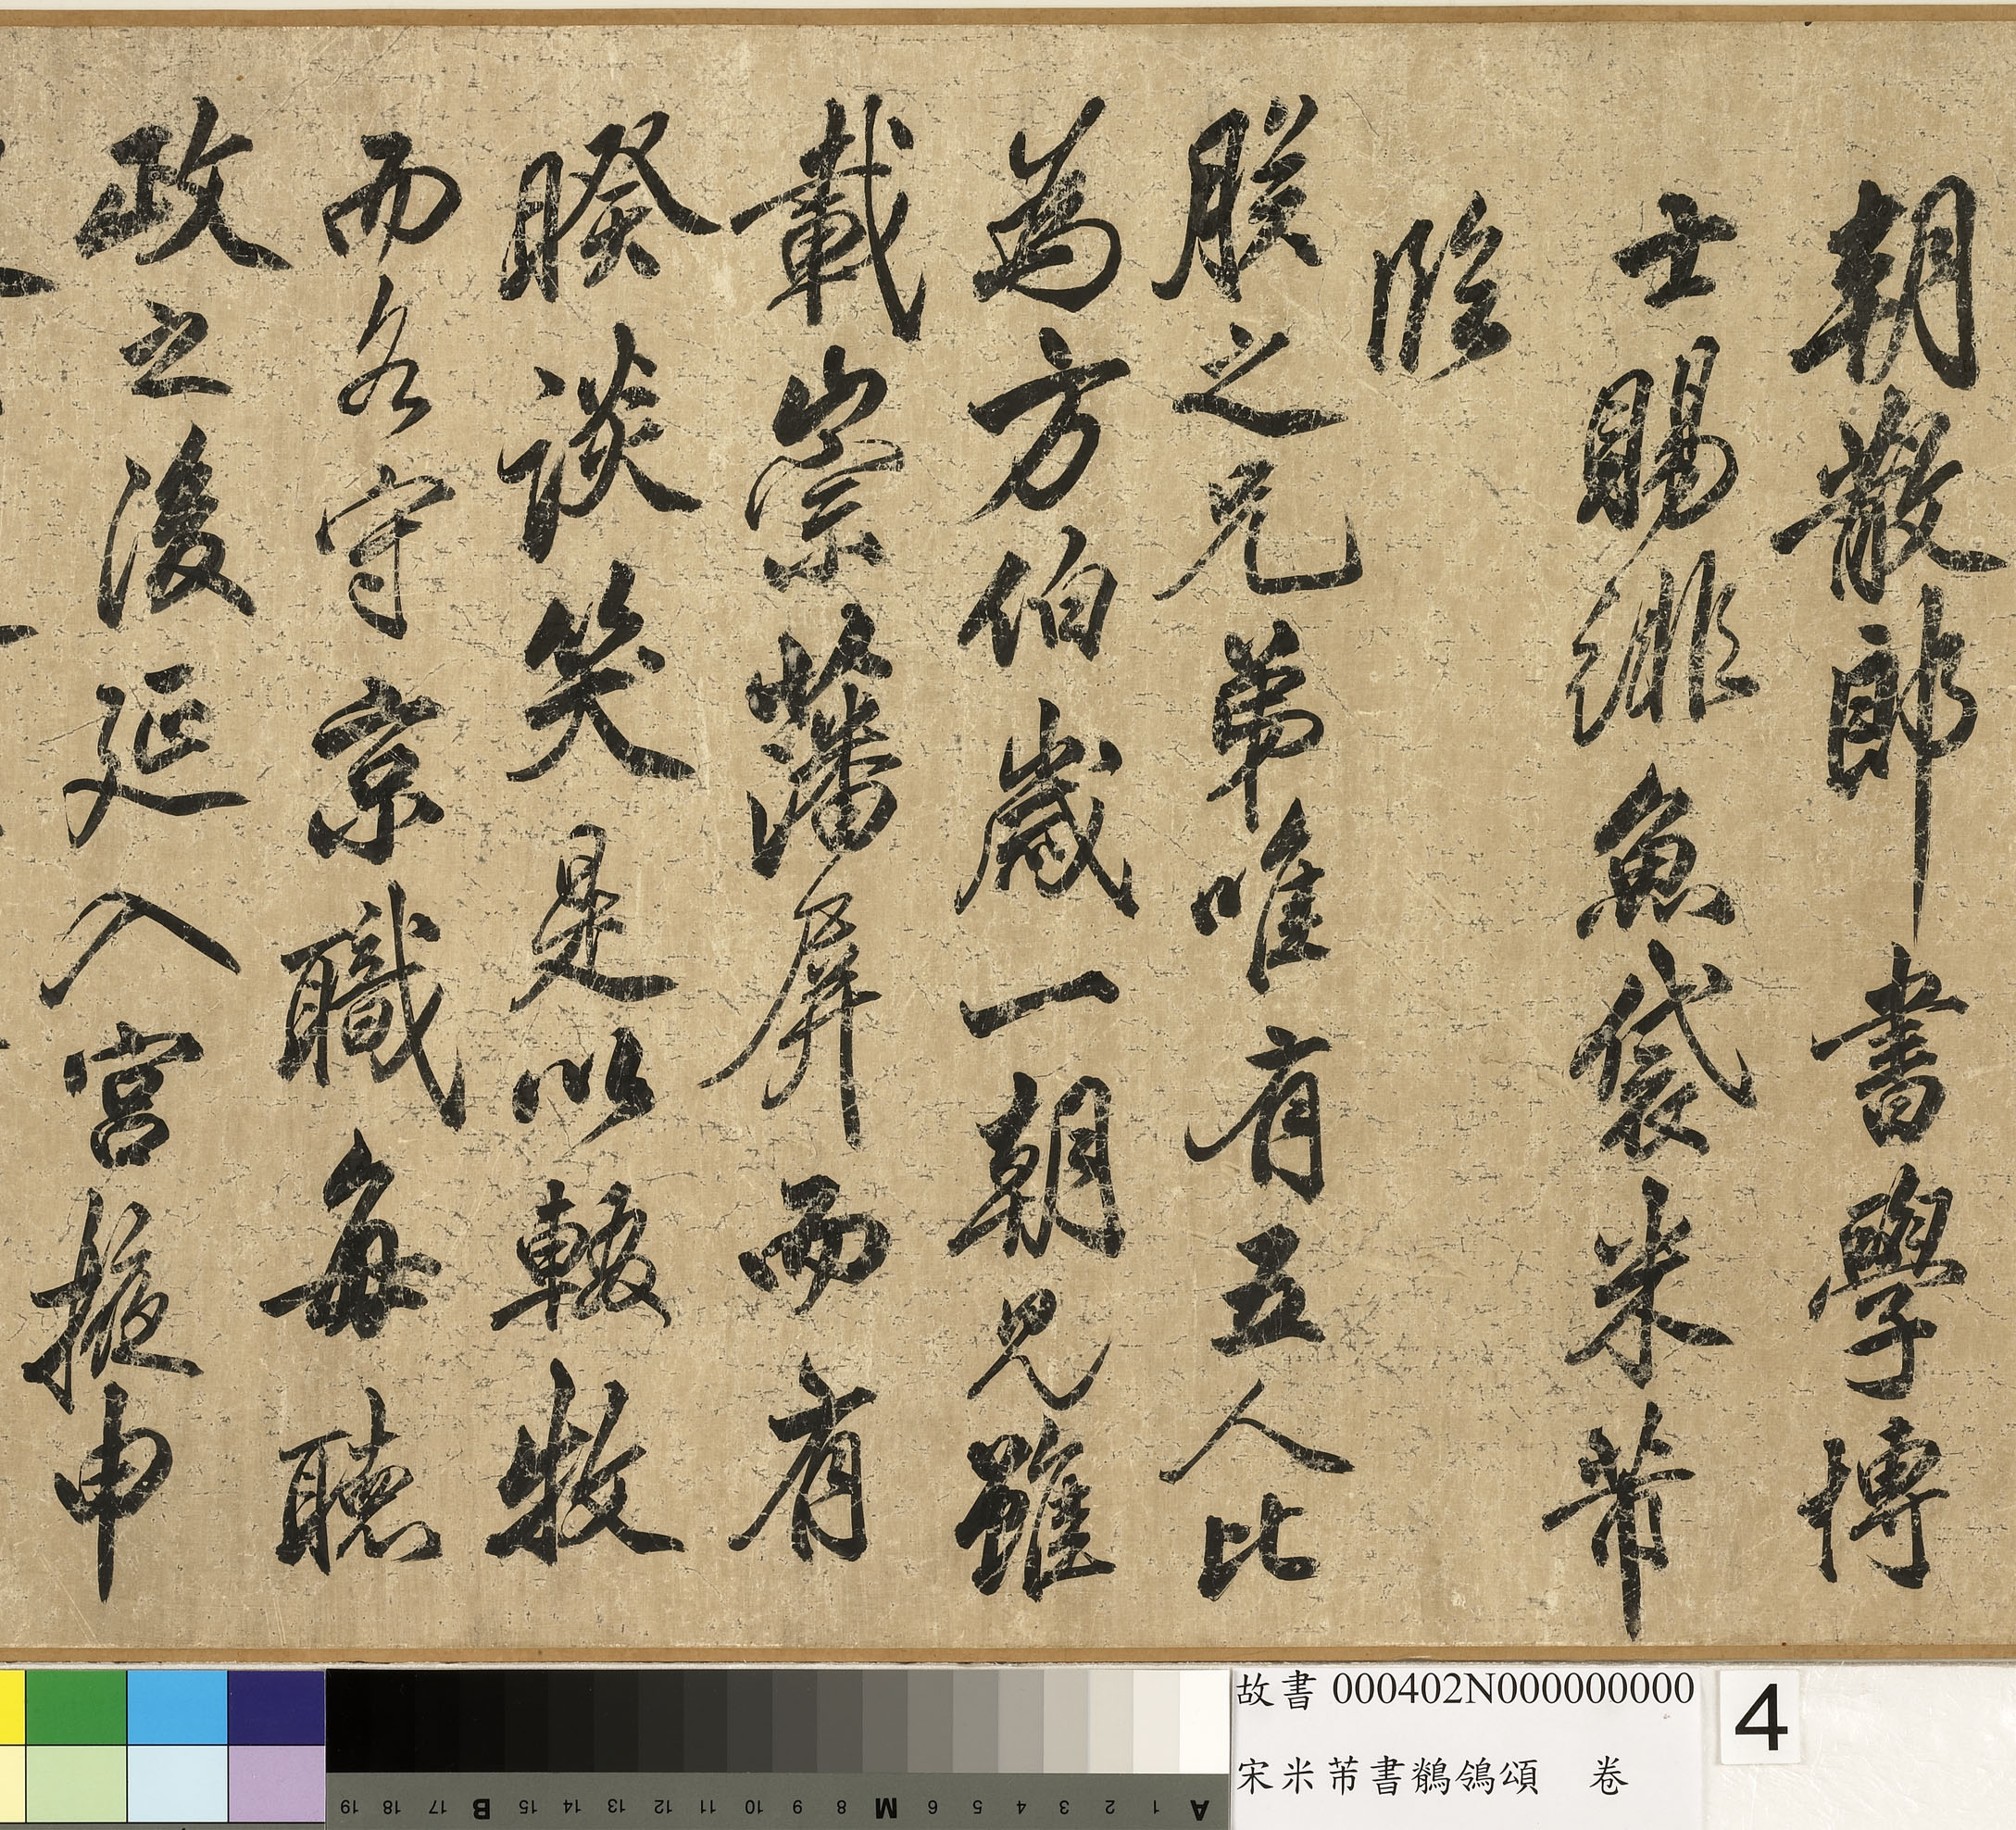 朝散郎書學博
士賜緋魚袋米芾
臨
朕之兄弟唯有五人比
為方伯歲一朝見雖
載崇藩屏而有
睽談笑是以輟牧
而各守京職每聽
政之後延入宮掖申
故書 000402N000000000
宋米芾書鶺鴒頌 卷
4
A 1 2 3 4 5 6 M 8 9 10 11 12 13 14 15 B 17 18 19